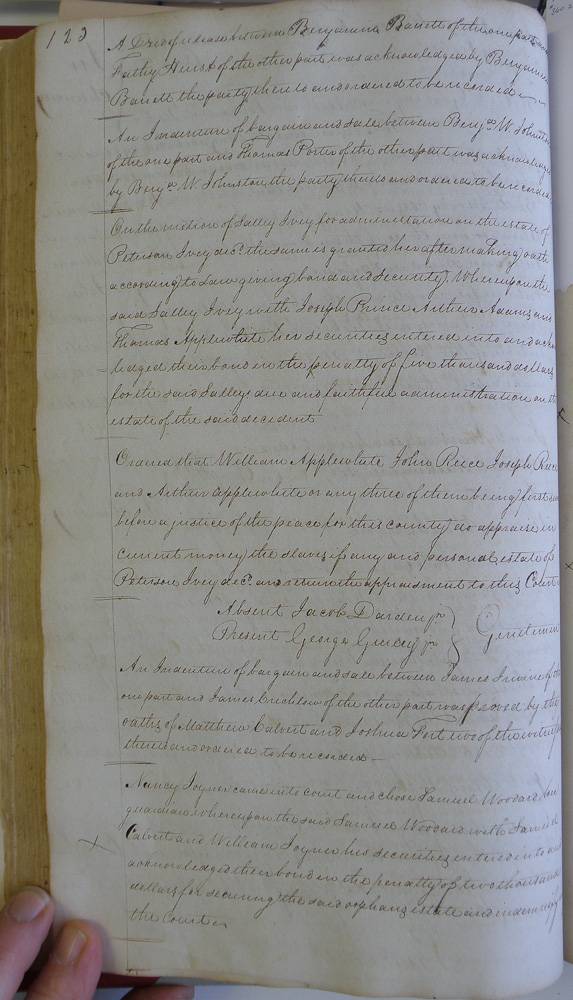 123
A Deed of release between Benjamin Barrett of the one part and
Fathey Hurst of the other part was acknowledged by Benjamin
Barrett the party thereto and ordered to be recorded
An Indenture of bargain and sale between Benjn W. Johnston
of the one part and Thomas Porter of the other part was acknowledged
by Benjn W Johnston the party thereto and ordered to be recorded
On the motion of Salley Ivey for administration on the estate of
Peterson Ivey decd. the same is granted her after making oath
according to Law giving bond and security. Whereupon the
said Salley Ivey with Joseph Prince Arthur Adams and
Thomas Applewhite her securities entered into and acknow
ledged their bond in the penalty of five thousand dollars
for the said Salleys due and faithful administration on the
estate of the said decedent
Ordered that William Applewhite John Reece Joseph Reece
and Arthur applewhite or any three of them being first sworn
before a justice of the peace for this county do appraise in
current money the slaves if any and personal estate of
Peterson Ivey decd. and return the appraisment to this Court
Absent Jacob Darden jr
Present George Gurley jr
Gentlemen
An Indenture of bargain and sale between James of the
one part and James Crichlow of the other part was proved by the
oaths of Matthew Calvert and Joshua Fort two of the witnesses
thereto and ordered to be recorded
Nancy Joyner came into court and chose Samuel Woodard her
guardian whereupon the said Samuel Woodard with Samuel
Calvert and William Joyner his securities entered into and
acknowledged their bond in the penalty of two thousand
dollars for securing the said orphans estate and indemnify
the Court